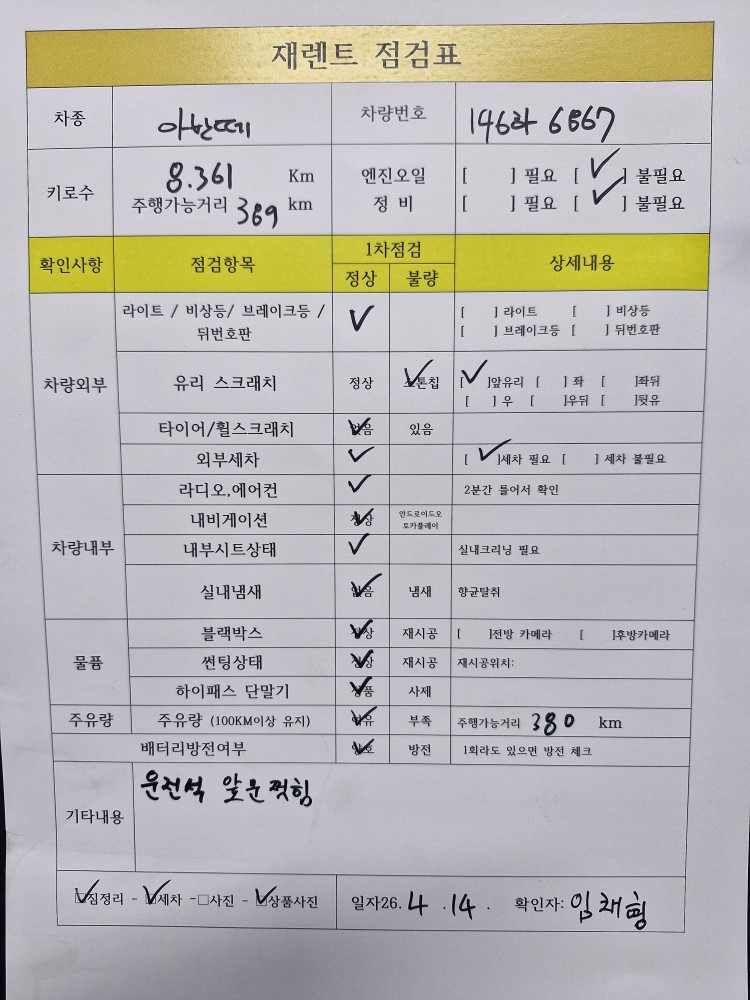 재렌트 점검표
차종 아반떼 차량번호 146라 6867
키로수 8.361 Km 엔진오일 [ ] 필요 [ ✓ ] 불필요
주행가능거리 369 km 정 비 [ ] 필요 [ ✓ ] 불필요
확인사항 점검항목 1차점검 상세내용
정상 불량
차량외부 라이트 / 비상등/ 브레이크등 / 뒤번호판 ✓ [ ] 라이트 [ ] 비상등
[ ] 브레이크등 [ ] 뒤번호판
유리 스크래치 정상 ✓ 스톤칩 [ ✓ ]앞유리 [ ] 좌 [ ]좌뒤
[ ] 우 [ ]우뒤 [ ]뒷유
타이어/휠스크래치 ✓ 없음 있음
외부세차 ✓ [ ✓ ]세차 필요 [ ] 세차 불필요
차량내부 라디오,에어컨 ✓ 2분간 틀어서 확인
내비게이션 ✓ 정상 안드로이드오토카플레이
내부시트상태 ✓ 실내크리닝 필요
실내냄새 ✓ 없음 냄새 향균탈취
물품 블랙박스 ✓ 정상 재시공 [ ]전방 카메라 [ ]후방카메라
썬팅상태 ✓ 정상 재시공 재시공위치:
하이패스 단말기 ✓ 사제
주유량 주유량 (100KM이상 유지) ✓ 여유 부족 주행가능거리 380 km
배터리방전여부 ✓ 양호 방전 1회라도 있으면 방전 체크
기타내용 운전석 앞문 찍힘
☑짐정리 - ☑세차 -□사진 - ☑상품사진 일자26. 4 .14 . 확인자: 임채형